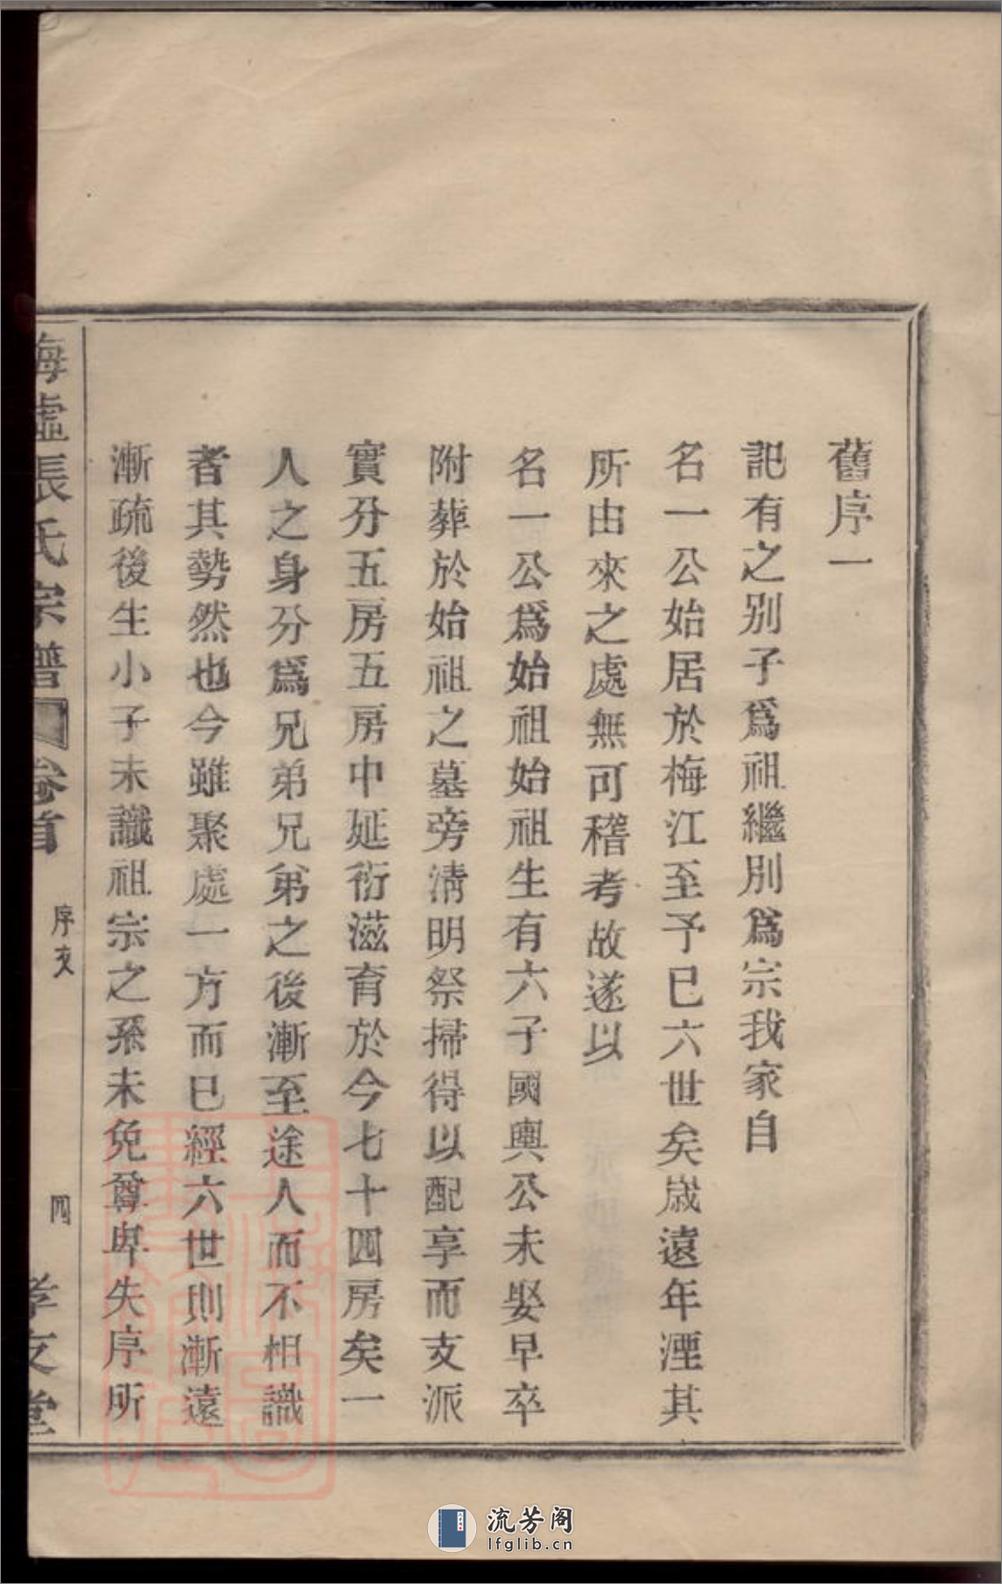 舊序一
記有之别子爲祖繼別爲宗我家自
名一公始居於梅江至予已六世矣歲遠年湮其
所由來之處無可稽考故遂以
名一公爲始祖始祖生有六子國輿公未娶早卒
附葬於始祖之墓旁清明祭掃得以配享而支派
實分五房五房中延衍滋育於今七十四房矣一
人之身分爲兄弟兄弟之後漸至途人而不相識
者其勢然也今雖聚處一方而已經六世則漸遠
漸疏後生小子未識祖宗之系未免尊卑失序所
海虛張氏宗譜 卷首 序文 四 孝友堂
流芳阁
lfglib.cn